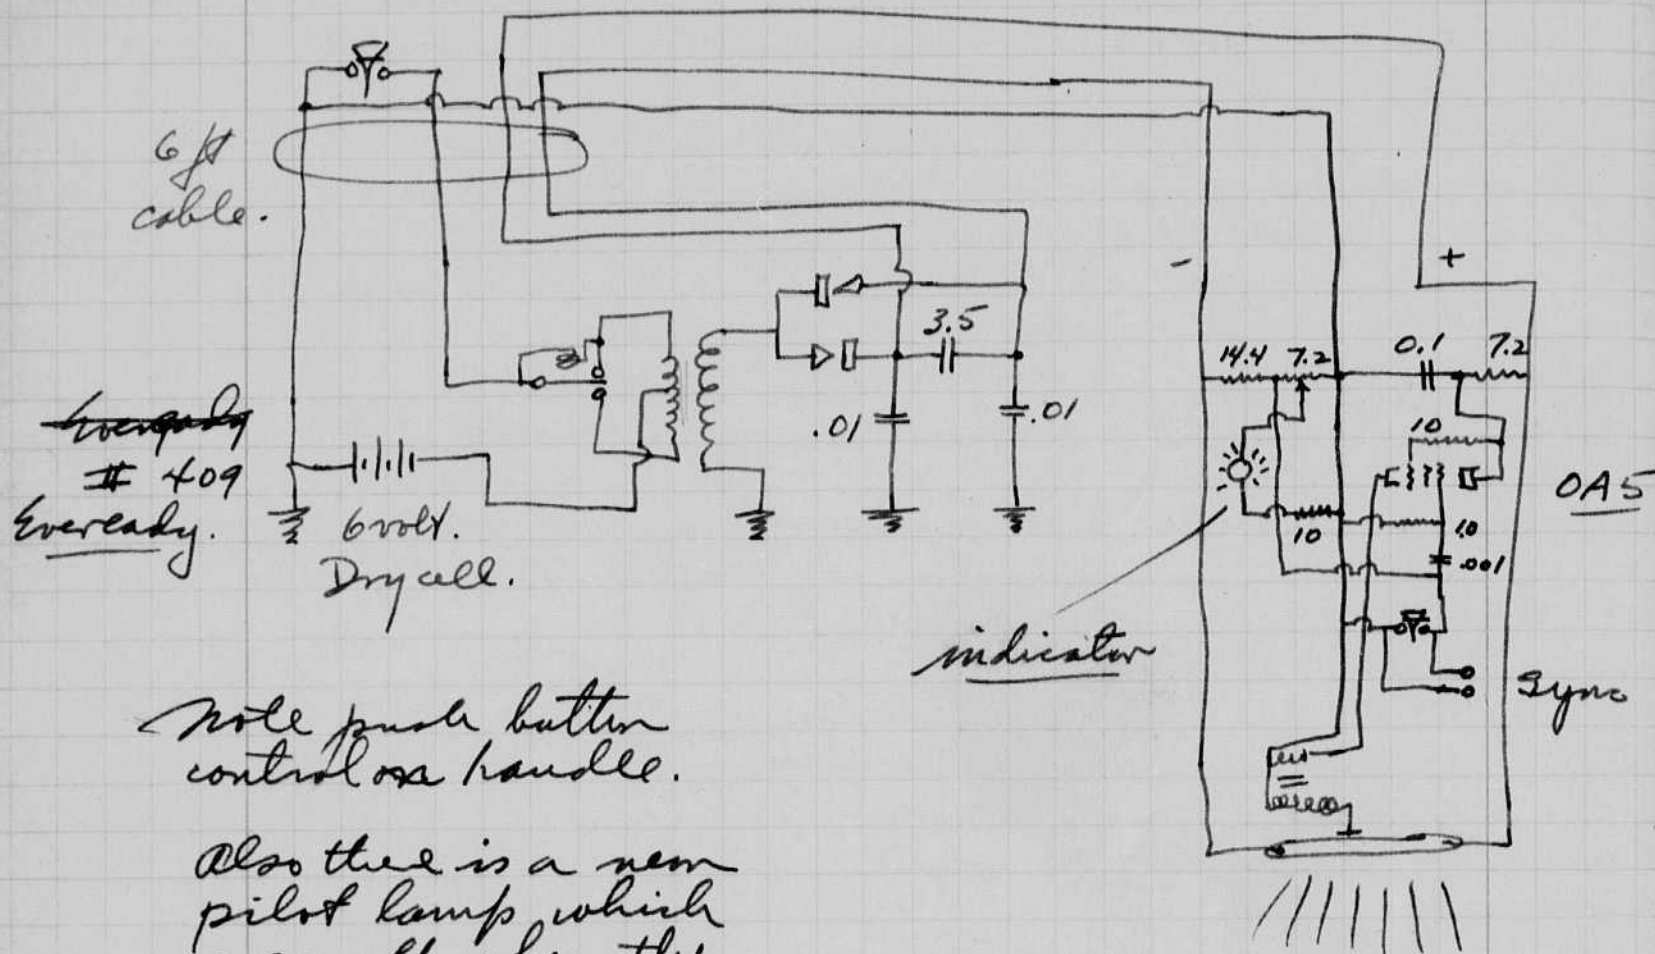 6 ft
cable.
3.5
.01
.01
Eveready
# 409
Eveready.
6 volt.
Dry cell.
-
+
14.4 7.2
0.1
7.2
10
OA5
10
10
.001
indicator
Sync
Note push button
control on handle.
Also there is a neon
pilot lamp which